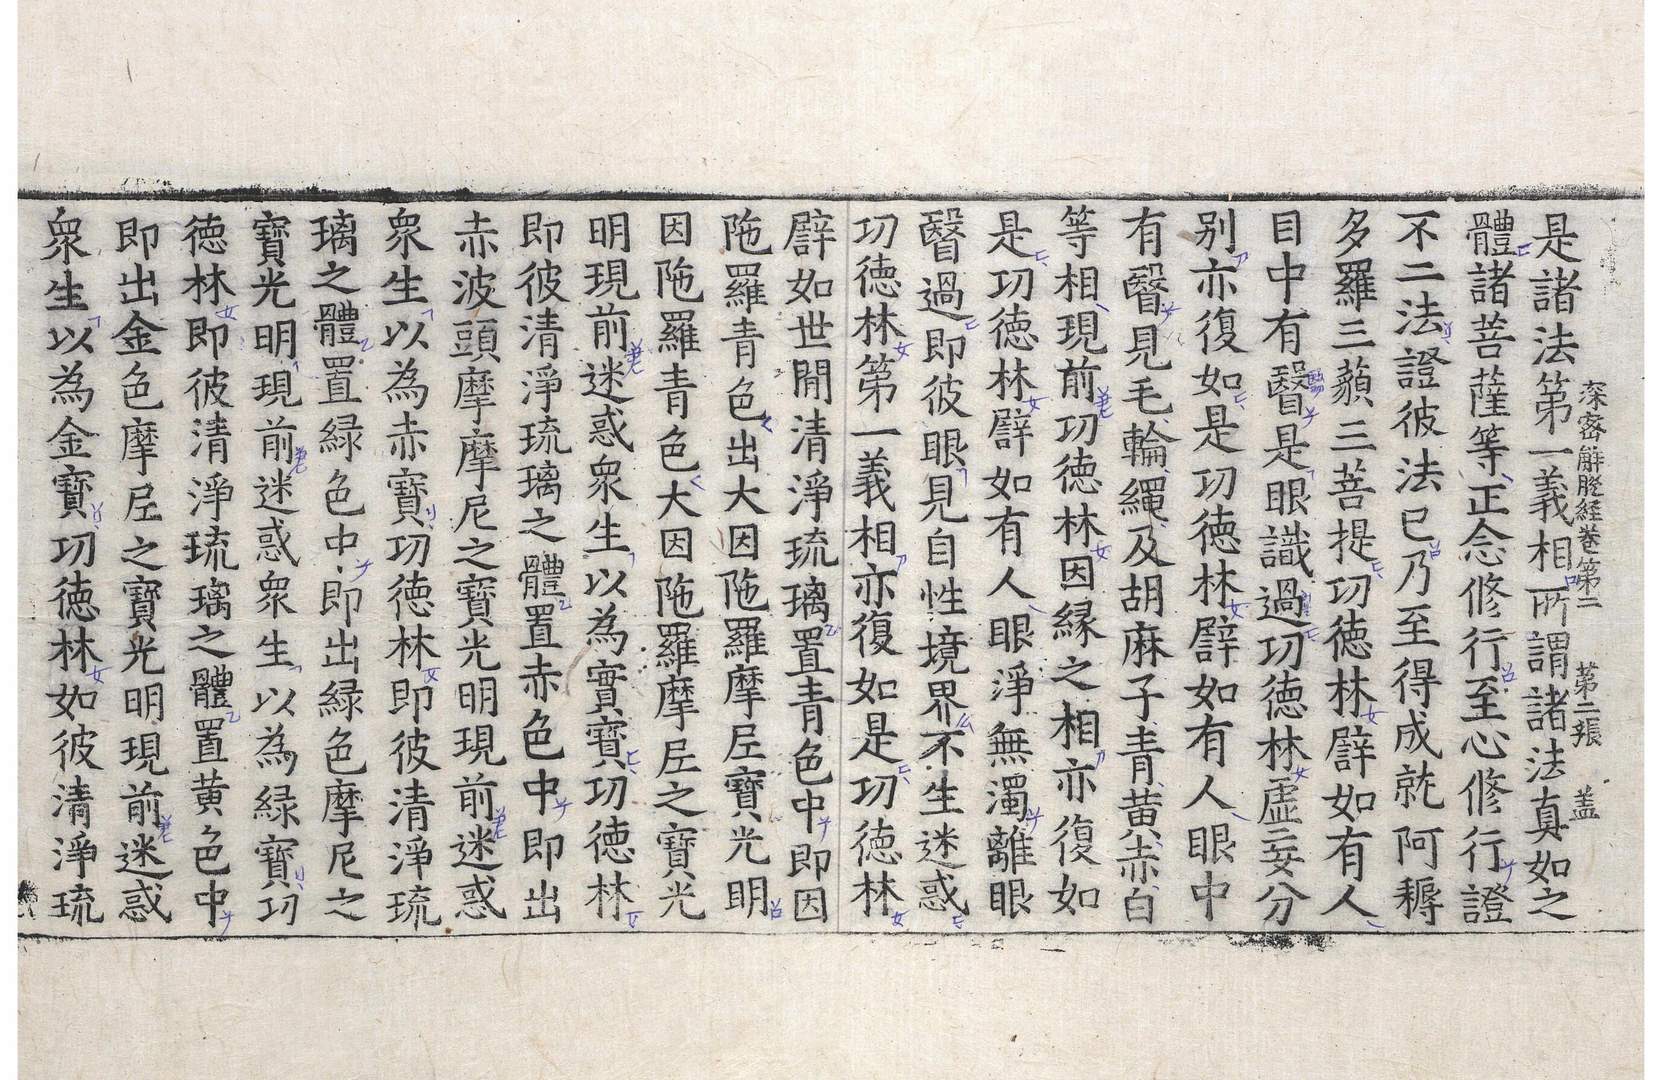 深密解脫経巻第二　第二張　盖
是諸法第一義相所謂諸法真如之
體諸菩薩等正念修行至心修行證
不二法證彼法已乃至得成就阿耨
多羅三藐三菩提㓛徳林譬如有人
目中有瞖是眼識過㓛徳林虛妄分
别亦復如是㓛徳林譬如有人眼中
有瞖見毛輪繩及胡麻子青黄赤白
等相現前㓛徳林因縁之相亦復如
是㓛徳林譬如有人眼淨無濁離眼
瞖過即彼眼見自性境界不生迷惑
㓛徳林第一義相亦復如是㓛徳林
譬如世間清淨琉璃置青色中即因
陁羅青色出大因陁羅摩尼寶光明
因陁羅青色大因陁羅摩尼之寶光
明現前迷惑衆生以為實寶㓛徳林
即彼清淨琉璃之體置赤色中即出
赤波頭摩摩尼之寶光明現前迷惑
衆生以為赤寶㓛徳林即彼清淨琉
璃之體置緑色中即出緑色摩尼之
寶光明現前迷惑衆生以為緑寶㓛
徳林即彼清淨琉璃之體置黄色中
即出金色摩尼之寶光明現前迷惑
衆生以為金寶㓛徳林如彼清淨琉